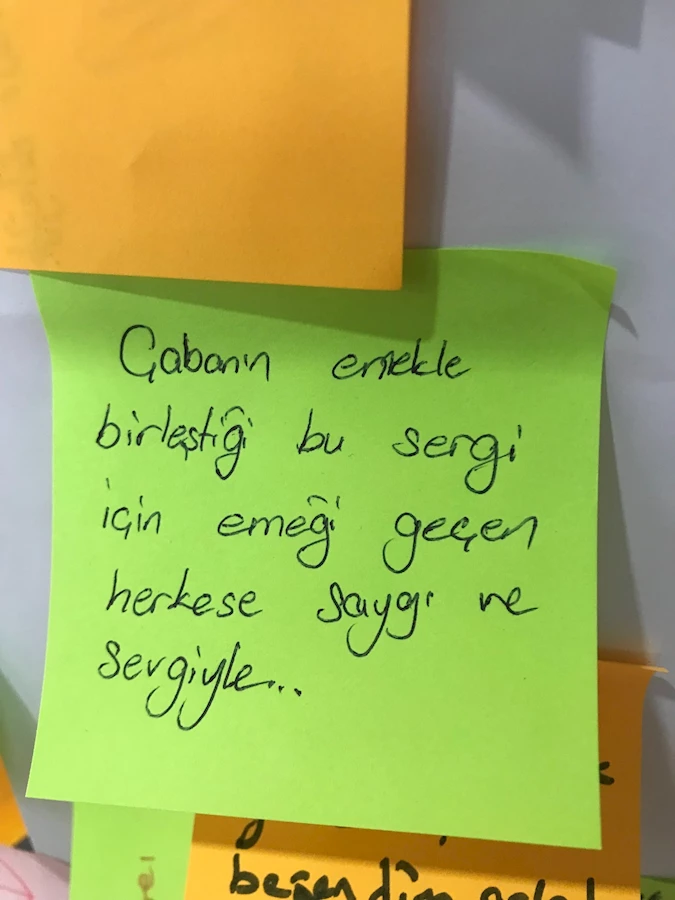 Çabanın emekle
birleştiği bu sergi
için emeği geçen
herkese saygı ve
sevgiyle...
beğendim